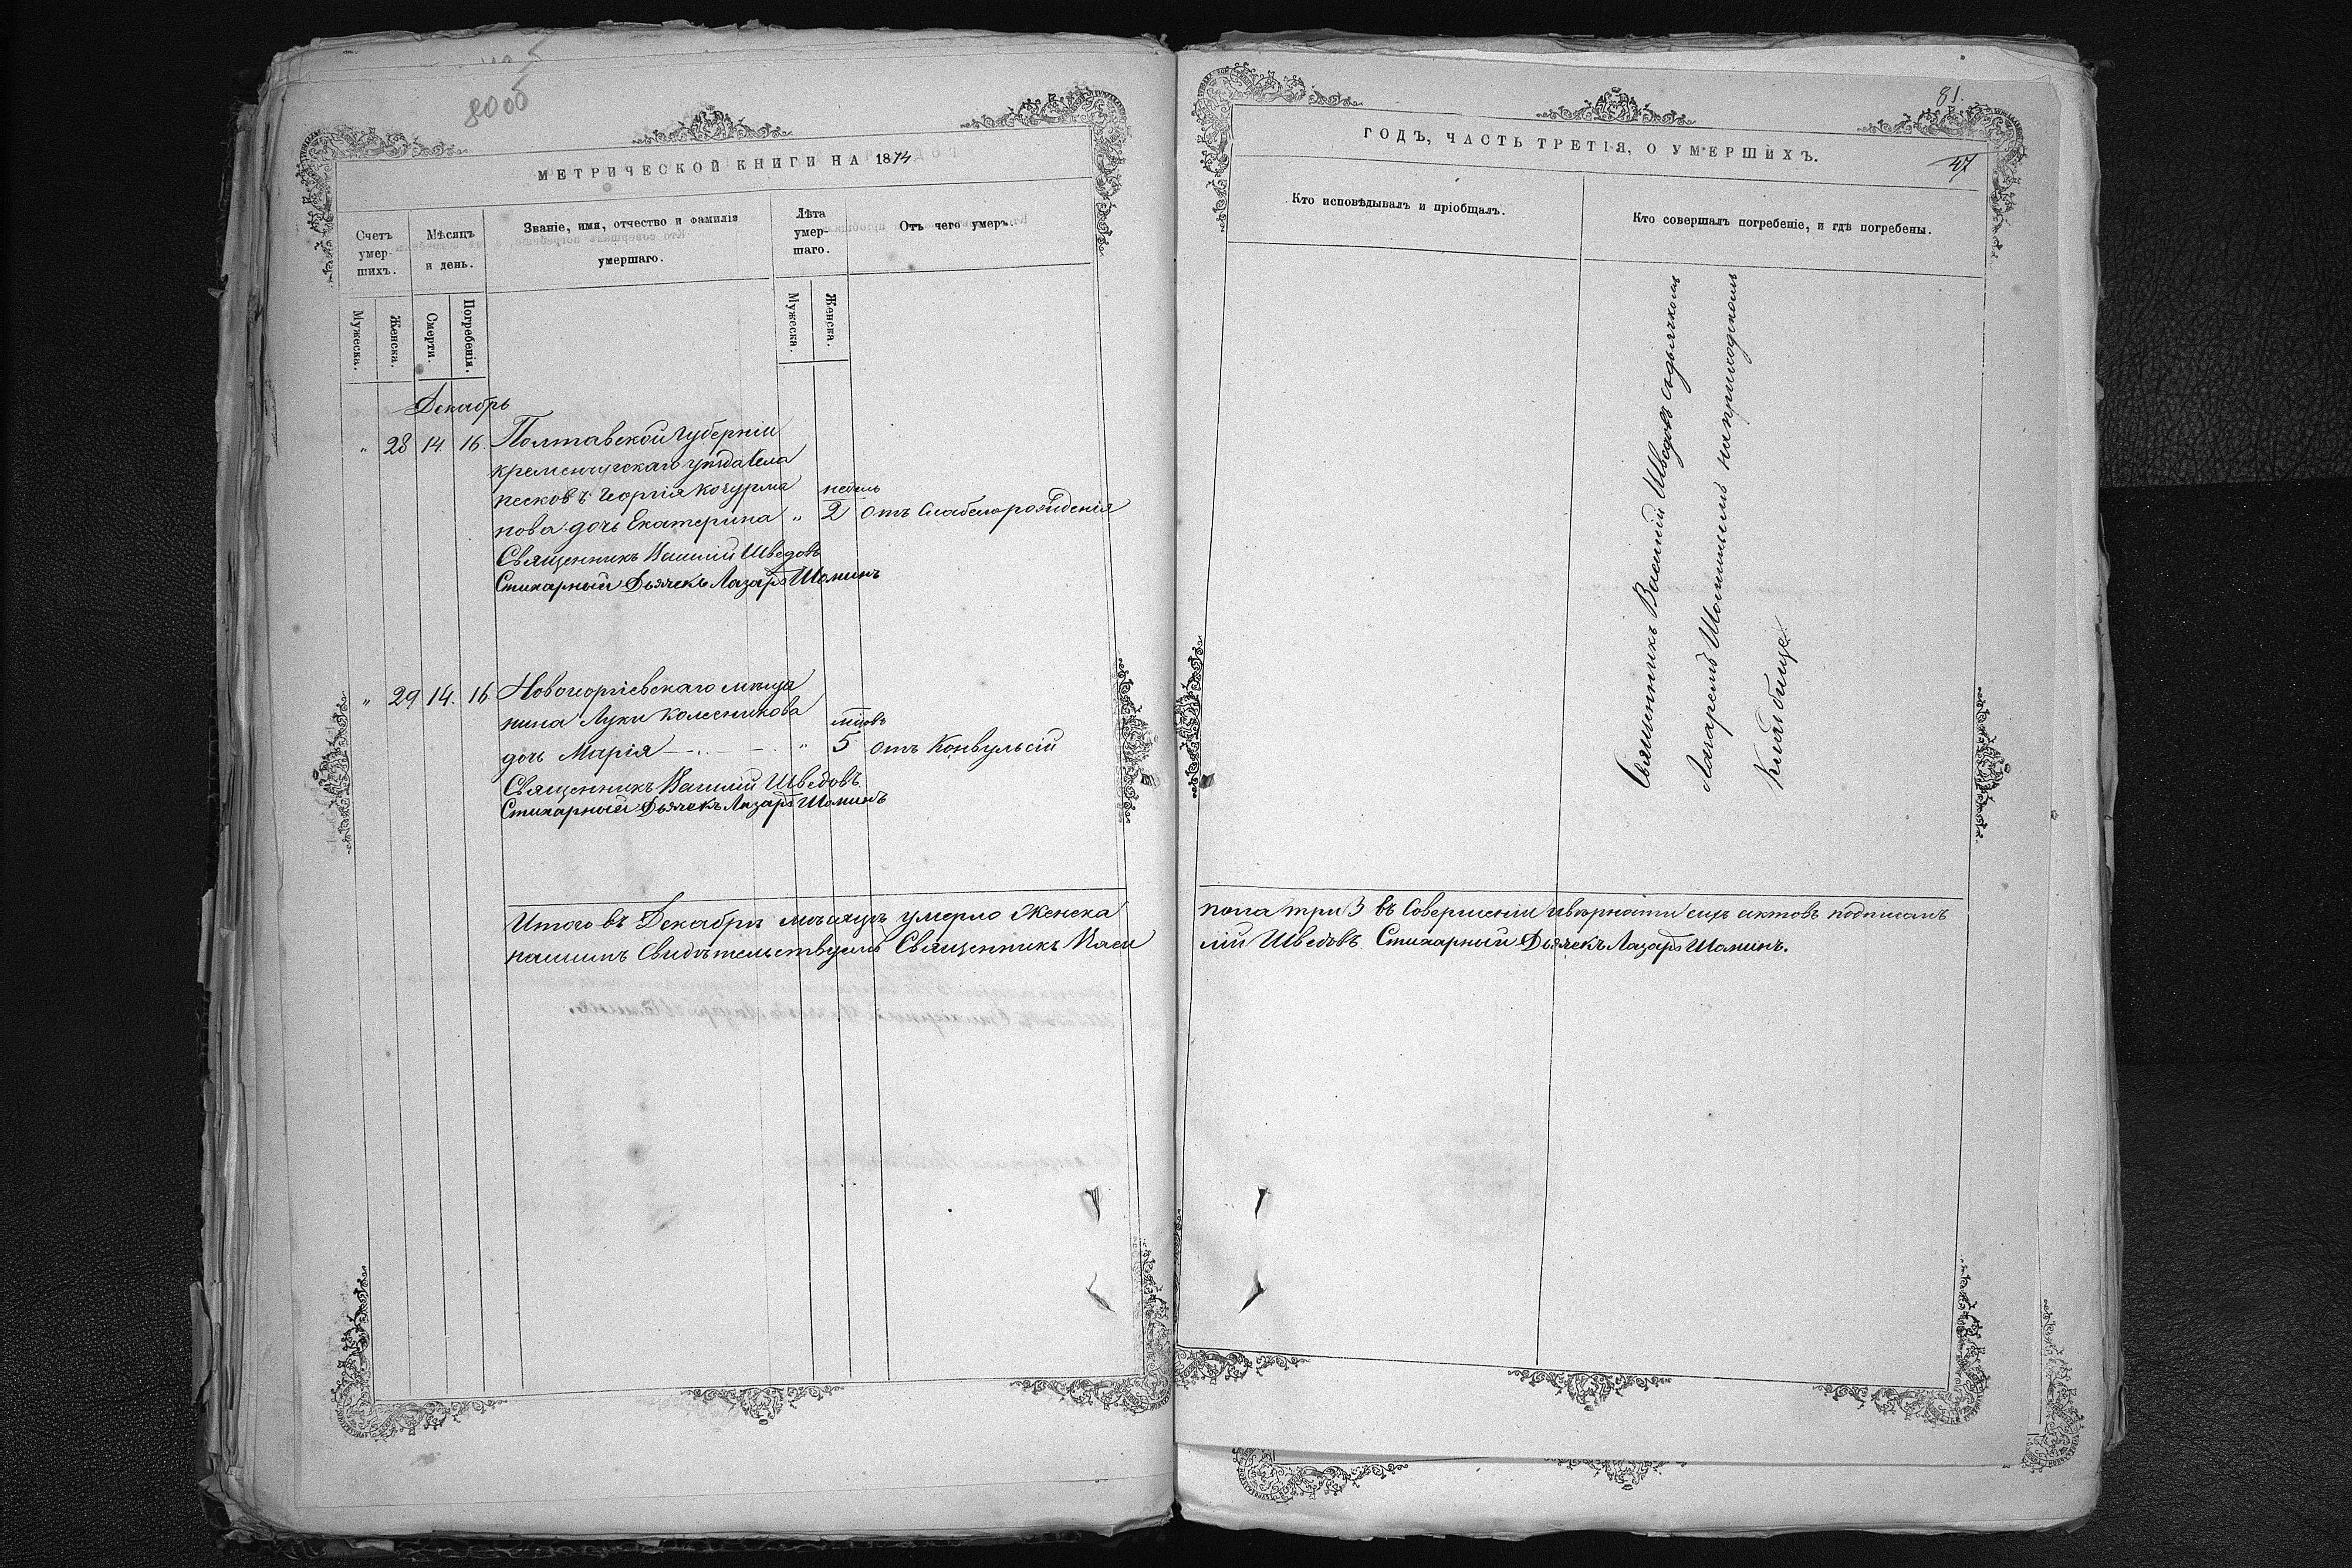 80 об
МЕТРИЧЕСКОЙ КНИГИ НА 1874
Счетъ умер- шихъ.
Мѣсяцъ и день.
Званіе, имя, отчество и фамилія умершаго.
Лѣта умер- шаго.
Отъ чего умеръ.
Мужеска.
Женска.
Смерти.
Погребенія.
Мужеска.
Женска.
Декабрь
" 28 14 16. Полтавской Губерніи
кременчугскаго уѣзда Села
песковъ Георгія Кочурма недѣль
нова дочь Екатерина " 2 отъ Слабаго рожденія
Священникъ Василій Шведовъ
Стихарный Дьячекъ Лазарь Шаминъ
" 29 14. 16 Новогоргіевскаго мѣща
нина Луки Колесникова мцовъ
дочь Марія " 5 отъ Конвульсій
Священникъ Василій Шведовъ
Стихарный Дьячекъ Лазарь Шаминъ
Итого въ Декабрѣ мѣсяцѣ умерло Женска
нашимъ Свидѣтельствуемъ Священникъ Васи
81.
47
ГОДЪ, ЧАСТЬ ТРЕТІЯ, О УМЕРШИХЪ.
Кто исповѣдывалъ и пріобщалъ.
Кто совершалъ погребеніе, и гдѣ погребены.
Священникъ Василій Шведовъ съ дьячкомъ
Лазаремъ Шаминымъ на приходскомъ
Кладбище
пола три 3 въ Совершеніи и вѣрности сихъ актовъ подписомъ
лій Шведовъ Стихарный Дьячекъ Лазарь Шаминъ.